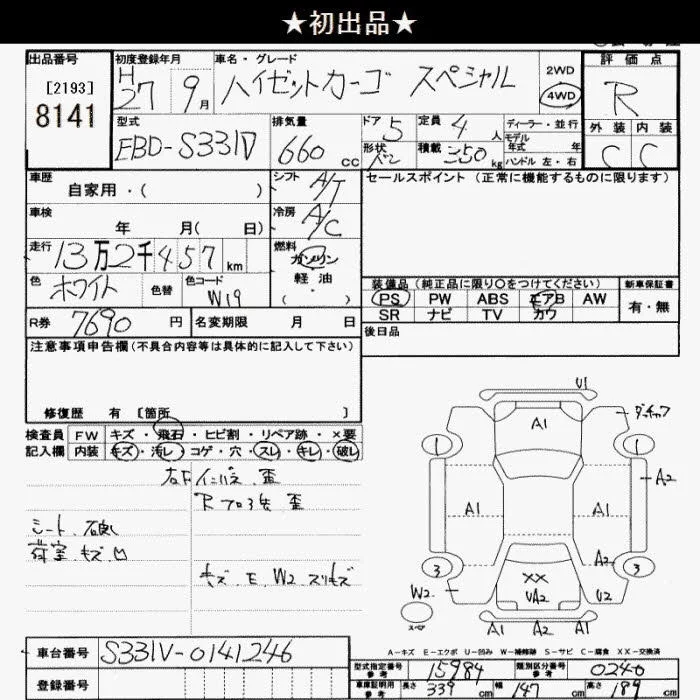 ★初出品★
出品番号
[2193]
8141
初度登録年月
H27 9月
車名・グレード
ハイゼットカーゴ スペシャル
2WD
4WD
評価点
R
外装 内装
C C
型式
EBD-S331V
排気量
660 cc
ドア 5
形状 バン
定員 4 人
積載 350 kg
ディーラー・並行
モデル年式 年
ハンドル 左・右
車歴
自家用・( )
シフト A/T
セールスポイント (正常に機能するものに限ります)
車検
年 月( 日)
冷房 A/C
走行 13万2千457 km
燃料
ガソリン
軽油
( )
色 ホワイト
色替
色コード W19
装備品 (純正品に限り〇をつけてください)
PS PW ABS エアB AW
SR ナビ TV カワ
新車保証書
有・無
R券 7690 円
名変期限 月 日
後日品
注意事項申告欄 (不具合内容等は具体的に記入して下さい)
修復歴 有 [箇所 ]
検査員記入欄
FW キズ・飛石・ヒビ割・リペア跡・×要
内装 キズ・汚レ・コゲ・穴・スレ・キレ・破レ
右Fインパネ 歪
Rフロア 歪
シート、破れ
荷室、キズ、凹
キズ E W2 スリキズ
U1
A1
1 1
A2
A1 A1
A2
3 3
XX
UA2
U2
W2
スペア
A1 A2 A1
A-キズ E-エクボ U-凹み W-補修跡 S-サビ C-腐食 XX-交換済
車台番号 S331V-0141246
登録番号
型式指定番号 参考 15984
類別区分番号 参考 0240
車庫証明用 参考 長さ 339 cm 幅 147 cm 高さ 189 cm